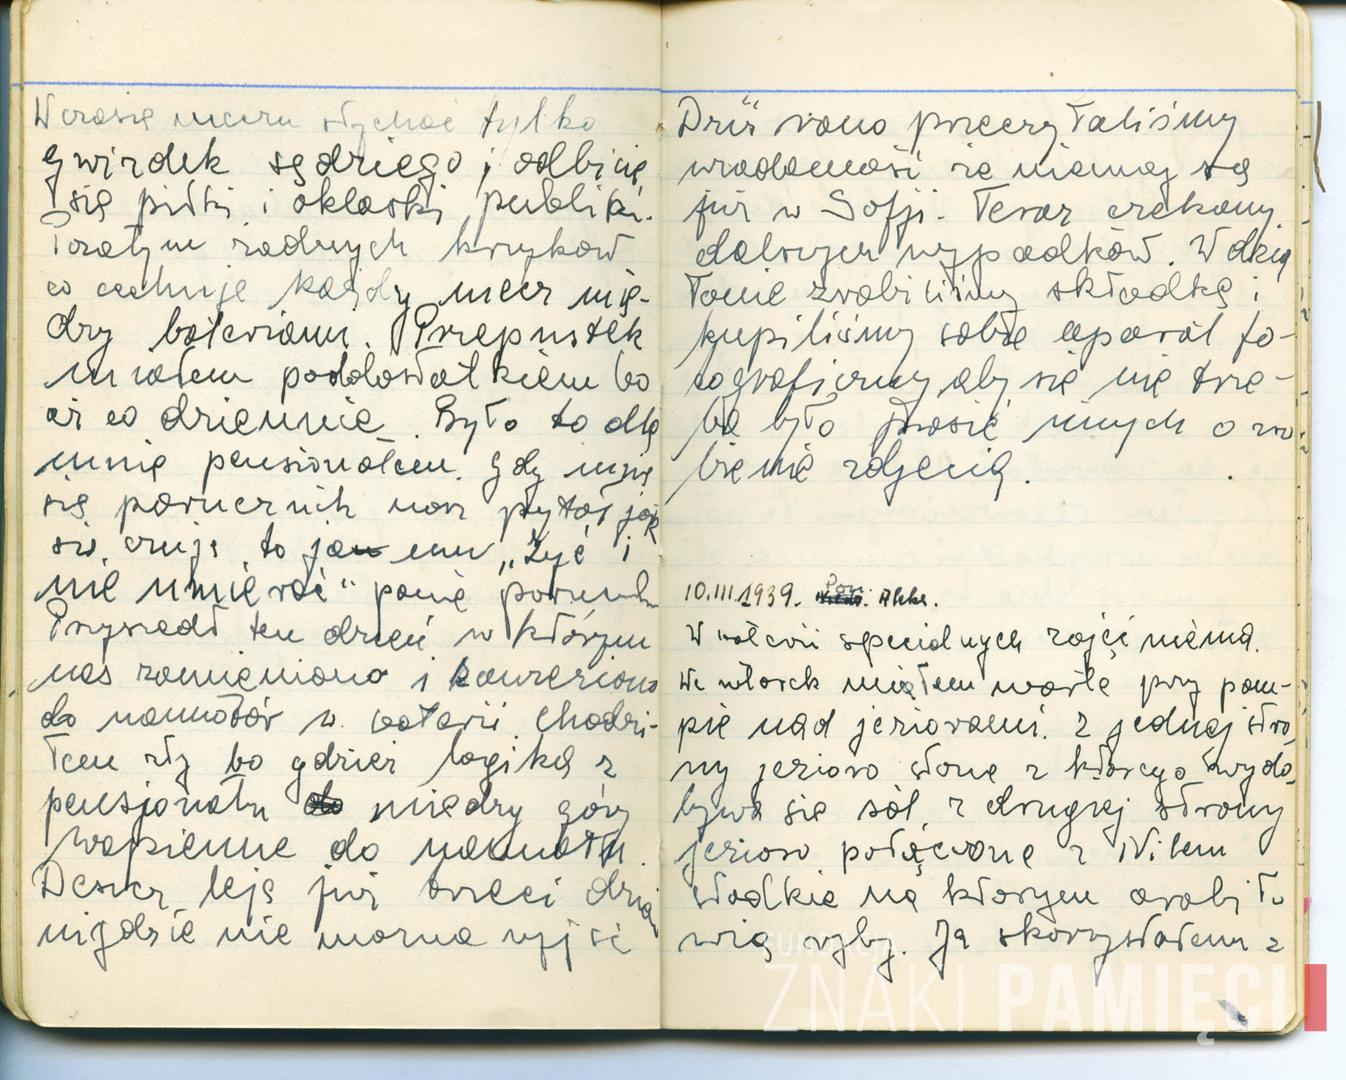 W czasie meczu słychać tylko
gwizdek sędziego, odbicie
się piłki i oklaski publiki.
Pozatym żadnych krzyków
co cechuje każdy mecz mię-
dzy bateriami. Przepustek
miałem podobostatkiem bo
aż co dziennie. Było to dla
mnie pensionatem. Gdy mnie
się porucznik nasz pytał jak
się czuję to ja mu „Żyć i
nie umierać" panie porucz.
Przyszedł ten dzień w którym
nas zamieniono i
do namiotów w baterii. Chodzi-
łem zły bo gdzież logika z
pensjonatu między góry
wapienne do namiotu.
Deszcz leje już trzeci dzień
nigdzie nie można wyjść
Dziś rano przeczytaliśmy
wiadomość że niemcy są
już w Sofji. Teraz czekamy
dalszych wypadków. W dział
łonie zrobiliśmy składkę i
kupiliśmy sobie aparat fo-
tograficzny aby się nie trze-
ba było prosić innych o zro
bienie zdjęcia.
10.III.1939. Aleks.
W baterii specialnych zajęć niema.
We wtorek miałem wartę przy pom-
pie nad jeziorami. Z jednej stro
ny jezioro słone z którego wydo
bywa się sól z drugiej strony
jezioro połączone z Nilem
słodkie na którym arabi ło
wią ryby. Ja skorzystałem z
FUNDACJA
ZNAKI PAMIĘCI